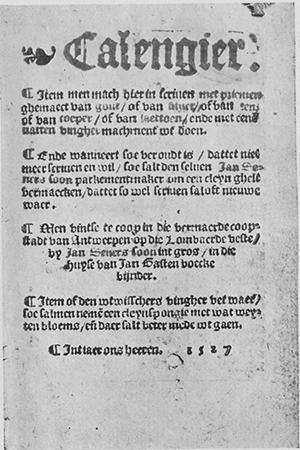 Calengier.
¶ Item men mach hier in scriuen met priemen
ghemaect van gout / of van siluer / of van tenn
of van coeper / of van lattoen / ende met eenē
natten vingher machment we doen.
¶ Ende wanneert soe veroudt is / dattet niet
meer scriuen en wil / soe salt den seluen Jan Se-
uers soon parkementmaker om een cleyn ghelt
vermaecken / dattet so wel scriuen sal oft nieuwe
waer.
¶ Men vintse te coop in die vermaerde coop-
stadt van Antwerpen op die Lombaerde veste /
by Jan Seuers soon int gros / in die
huyse van Jan Gasten boecke
binder.
¶ Item of den wtwisschers vingher vet waer /
soe salmen nemē een cleyn spongie met wat wey-
ten bloems / eñ daer salt beter mede wt gaen.
¶ Int iaer ons heeren. 1527